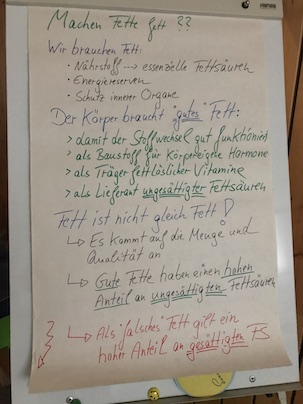 Machen Fette fett ??
Wir brauchen Fett:
· Nährstoff → essenzielle Fettsäuren
· Energiereserven
· Schutz innerer Organe
Der Körper braucht "gutes" Fett:
> damit der Stoffwechsel gut funktioniert
> als Baustoff für körpereigene Hormone
> als Träger fettlöslicher Vitamine
> als Lieferant ungesättigter Fettsäuren
Fett ist nicht gleich Fett!
↳ Es kommt auf die Menge und
Qualität an
↳ Gute Fette haben einen hohen
Anteil an ungesättigten Fettsäuren
↳ Als "falsches" Fett gilt ein
hoher Anteil an gesättigten FS